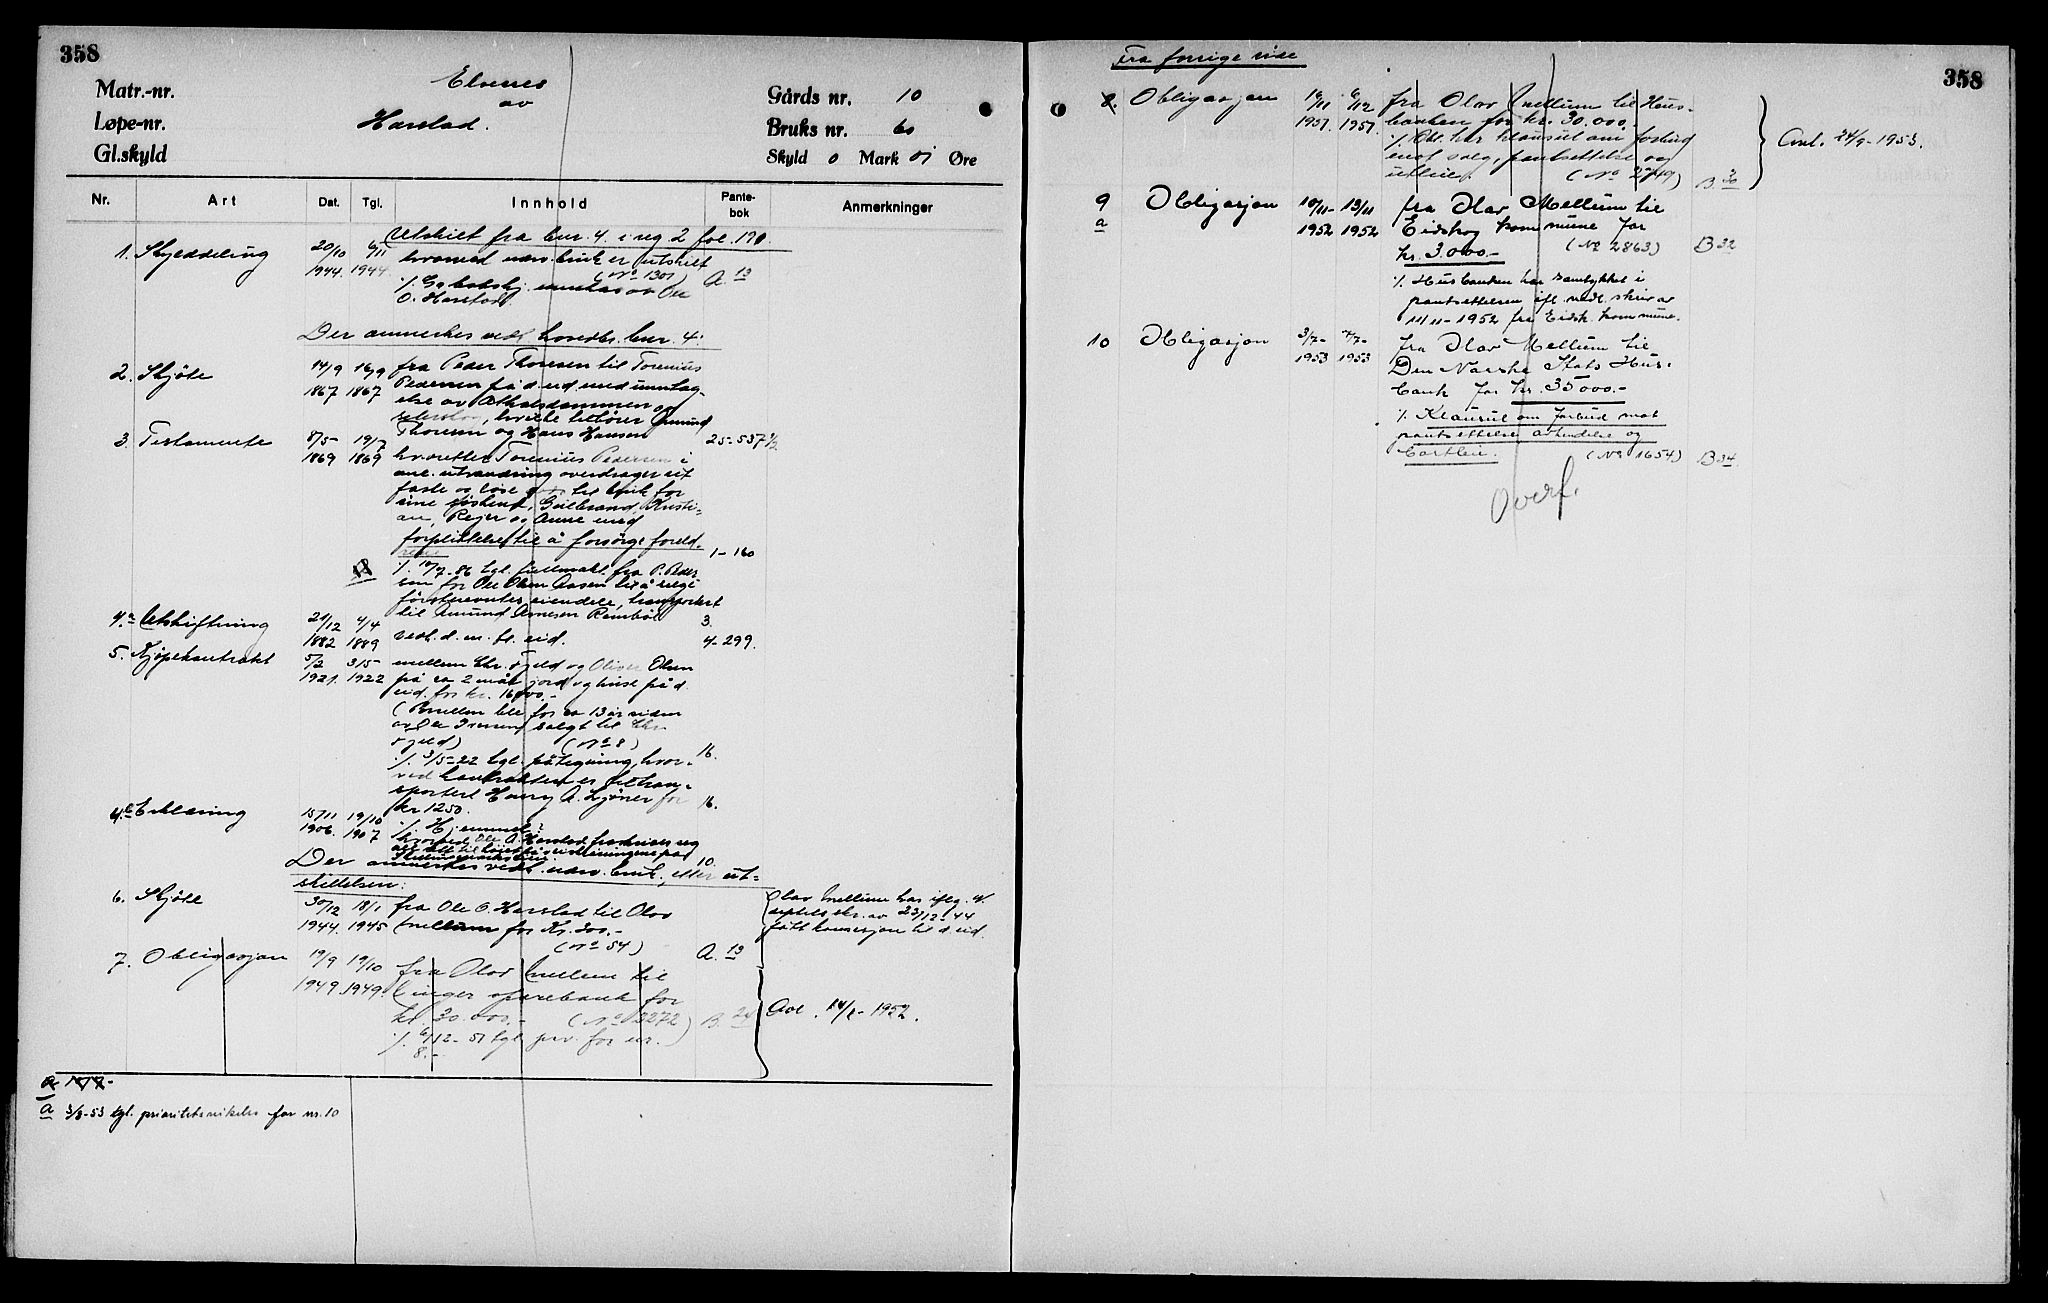 358
Matr.-nr.
Løpe-nr.
Gl.skyld
Elvenes
av
Harstad.
Gårds nr. 10
Bruks nr. 60
Skyld 0 Mark 01 Øre
Nr. Art Dat. Tgl. Innhold Pante-bok Anmerkninger
Utskilt fra bnr. 4. i reg 2 fol. 170.
1. Skylddeling 20/10 1944. 6/11 1944. hvorved nærv. bruk er utskilt
(No 1301) A. 13
O. Harstad.
Der anmerkes vedk. hovedbr. bnr. 4:
2. Skjøte 14/9 1867 16/9 1867 fra Peder Thoresen til Torenius
Pedersen på d. eid. med unntag-
else av
hvilke tilhører Amund
Thoresen og Hans Hansen
3. Testamente 8/5- 1869 19/7 1869 25-537
hvoretter Torenius Pedersen i
anl. utvandring overdrager sit
faste og løse til bruk for
sine søskend, Gulbrand, Kristi-
ane, Peger og Anne med
forpliktelse til å forsørge foreld-
rene 1-160
%. 14/7-86 tgl. fullmakt fra P. Peder-
sen for Ole Olsen Aasen til å selge
førstnevntes eiendele, transportert
til Amund Arnesen Rambøl 3.
4.a Utskiftning 21/12 1882 4/4 1889 vedk. d. m. fl. eid. 4-299.
5. Kjøpekontrakt 5/2 1921. 3/5- 1922 mellem Chr. Fjeld og Oliver Olsen
på ca 2 mål jord og huse på d.
eid. for kr. 16000.-
ble for ca 13 år siden
av Ole Iversen solgt til Chr.
Fjeld) (No 8) 16.
%. 3/5-22 tgl. påtegning, hvor-
ved kontrakten er tiltran-
sportert Henry A. for 16.
kr 1250.
4.b Erklæring 15/11 1906. 19/10 1907
%. Hjemmel:
hvorved Ole A. Harstad fraskriver seg
10.
Der anmerkes vedk. nærv. bruk, etter ut-
skillelsen:
6. Skjøte 30/12 1944. 18/1 1945 fra Ole O. Harstad til Olov
Mellem for Kr. 300.-
(No 54) A. 13
Olav Mellem har iflg.
skr. av 23/12-44
fått konsesjon til d. eid.
7. Obligasjon 19/9 1949. 19/10 1949. fra Olov Mellem til
Vinger sparebank for
kr. 30.000.- (No 2272) B. 24
%. 6/12-51 tgl. prv. for nr.
8.-
Avl. 14/2-1952.
a 3/8-53 tgl. prioritetsvikelse for nr. 10
Fra forrige side
358
8. Obligasjon 16/11 1951. 6/12 1951. fra Olov Mellem til Hus-
banken for kr. 30.000.-
%. Obl. har klausul om forbud
mot salg, pantsettelse og
utleie. (No 2749) B. 30
Avl. 24/9-1953.
9 Obligasjon 10/11- 1952 13/11 1952 fra Olav Mellem til
a Eidskog kommune for
kr. 3.000.- (No 2863) B 32
%. Husbanken har samtykket i
pantsettelsen ifl. vedl. skriv av
11/11-1952 fra Eidsk. kommune.
10 Obligasjon 3/7- 1953 4/7- 1953 fra Olav Mellem til
Den Norske Stats Hus-
bank for kr. 35000.-
%. Klausul om forbud mot
pantsettelse avhendelse og
bortleie. (No 1654) B 34.
Overf.